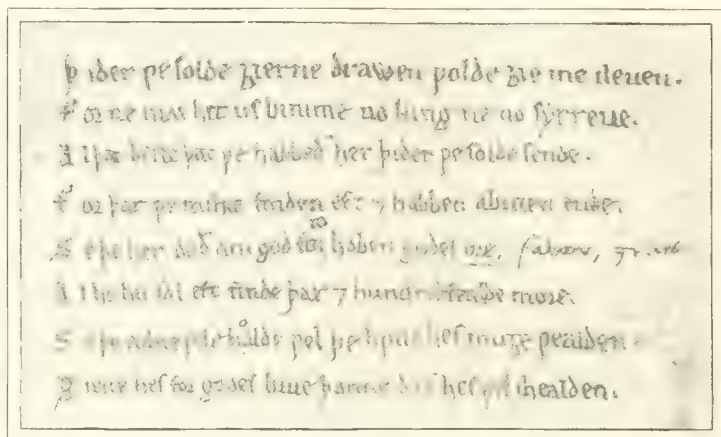 Þider ƿe solde ȝierne draƿen ƿolde ȝie me ileuen.
For ne mai hit us binime no king ne no syrreue.
Al þat beste þat ƿe habbeð her þider ƿe solde sende.
For þar ƿe mihte finden eft ⁊ habben abuten ende.
Se þe her doð ani god for to haben godes ore,
Al he hit sal eft finde þar ⁊ hundredfealde more.
Se þe ƿile holde ƿel þe hƿile hes muȝe ƿealden.
Ȝieue hes for godes luue þanne doð hes ƿel ihealden.